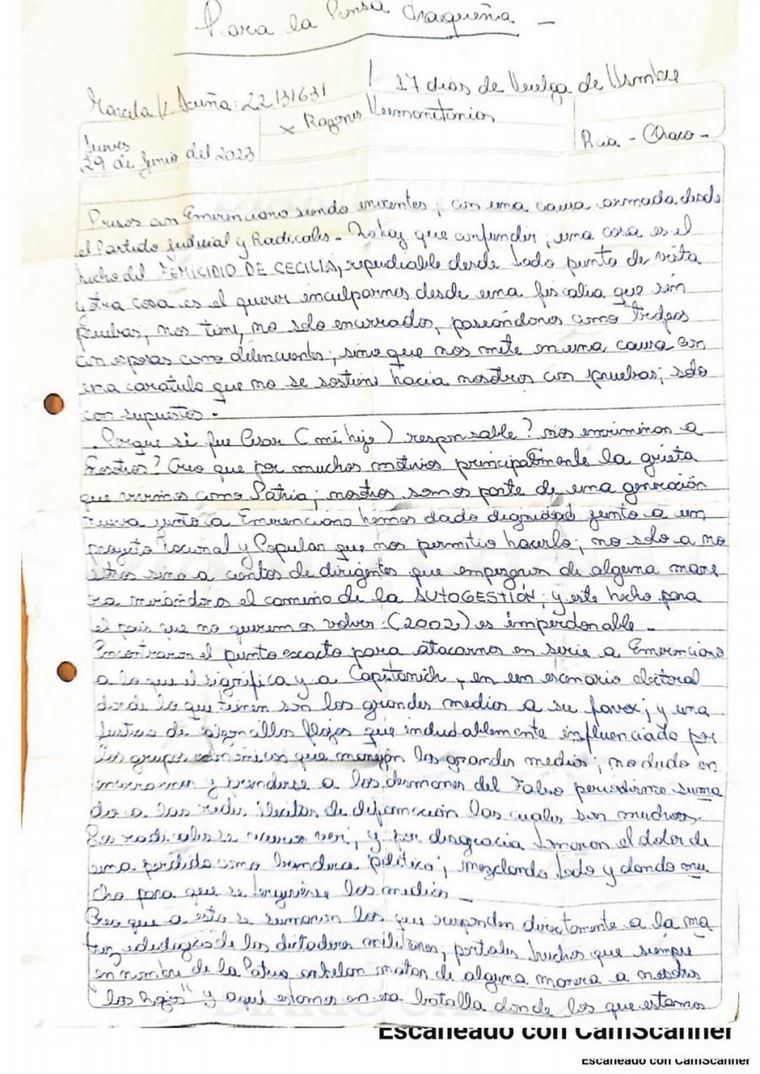 Para la Prensa Chaqueña -
Marcela V. Acuña: 22131631 / 17 días de Huelga de Hambre
Jueves x Razones Humanitarias
29 de Junio del 2023 Rcia - Chaco -
Presos con Emerenciano siendo inocentes, con una causa armada desde
el Partido Judicial y Radicales - No hay que confundir; una cosa es el
hecho del FEMICIDIO DE CECILIA, repudiable desde todo punto de vista
y otra cosa es el querer inculparnos desde una fiscalia que sin
pruebas, nos tiene, no solo encerrados, paseándonos como Trofeos
con esposas como delincuentes; sino que nos mete en una causa con
una caratula que no se sostiene hacia nosotros con pruebas; solo
con supuestos -
. Porque si fue Cesar (mi hijo) responsable? nos incriminan a
nosotros? Creo que por muchos motivos principalmente la grieta
que vivimos como Patria; nosotros somos parte de una generación
nueva junto a Emerenciano hemos dado dignidad junto a un
proyecto Nacional y Popular que nos permitio hacerlo; no solo a no
sotros sino a cientos de dirigentes que empezaron de alguna mane
ra mirándose el camino de la AUTOGESTIÓN; y este hecho para
el país que no queremos volver (2002) es imperdonable -
Encontraron el punto exacto para atacarnos en serie a Emerenciano
a lo que el significa y a Capitanich, en un escenario electoral
donde lo que tienen son los grandes medios a su favor; y una
Justicia de algonillos flojos que indudablemente influenciada por
los grupos económicos que manejan los grandes medios; no dudo en
encerrarnos y rendirse a los desmanes del Falso periodismo suma
do a las redes ilícitas de difamación las cuales son muchas.
Los radicales se vieron ver, y por desgracia tomaron el dolor de
una perdida como bandera politica; mezclando todo y dando mu
cho para que se tergiverse los medios -
Creo que a esto se sumaron los que responden directamente a la ma
triz ideologica de los dictadores militares, portales truchos que siempre
en nombre de la Patria anhelan matar de alguna manera a nosotros
"los Rojos" y aquí estamos en esa batalla donde los que estamos
Escaneado con CamScanner
Escaneado con CamScanner